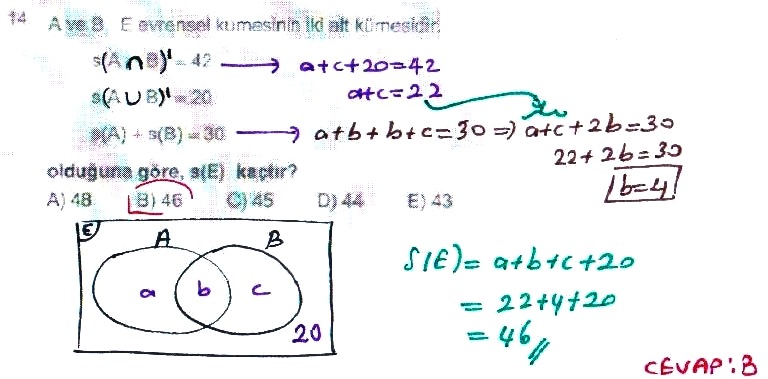 14 A ve B, E evrensel kümesinin iki alt kümesidir.
s(A∩B)' = 42 → a+c+20=42
a+c=22
s(A∪B)' = 20
s(A) + s(B) = 30 → a+b+b+c=30 ⇒ a+c+2b=30
22+2b=30
b=4
olduğuna göre, s(E) kaçtır?
A) 48 B) 46 C) 45 D) 44 E) 43
E A B
a b c
20
S(E)= a+b+c+20
= 22+4+20
= 46//
CEVAP: B